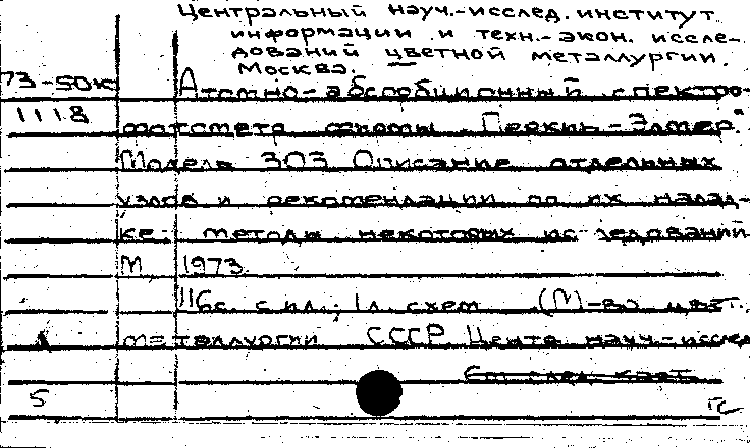 Центральный науч.-исслед. институт
информации и техн.-экон. иссле-
дований цветной металлургии.
Москва.
73-50к Атомно-абсорбционный спектро-
1118 фотометр фирмы "Перкин-Элмер".
Модель 303 Описание отдельных
узлов и рекомендации по их налад-
ке. методы некоторых исследований
М 1973.
116с. с ил.; 1л. схем (М-во цвет.
металлургии СССР Центр науч.-исслед
См след карт.
5